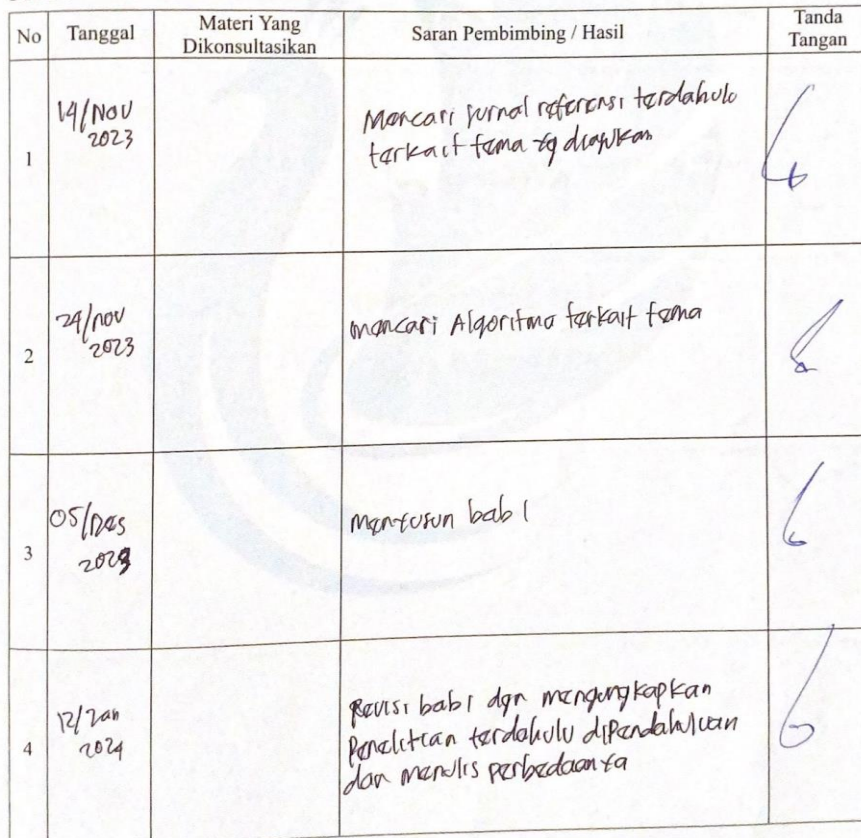 No Tanggal Materi Yang Dikonsultasikan Saran Pembimbing / Hasil Tanda Tangan
1 14/Nov 2023 Mencari jurnal referensi terdahulu
terkait tema yg diajukan
2 24/nov 2023 mencari Algoritma terkait tema
3 05/Des 2023 menyusun bab 1
4 12/Jan 2024 Revisi bab 1 dgn mengungkapkan
Penelitian terdahulu dipendahuluan
dan menulis perbedaannya